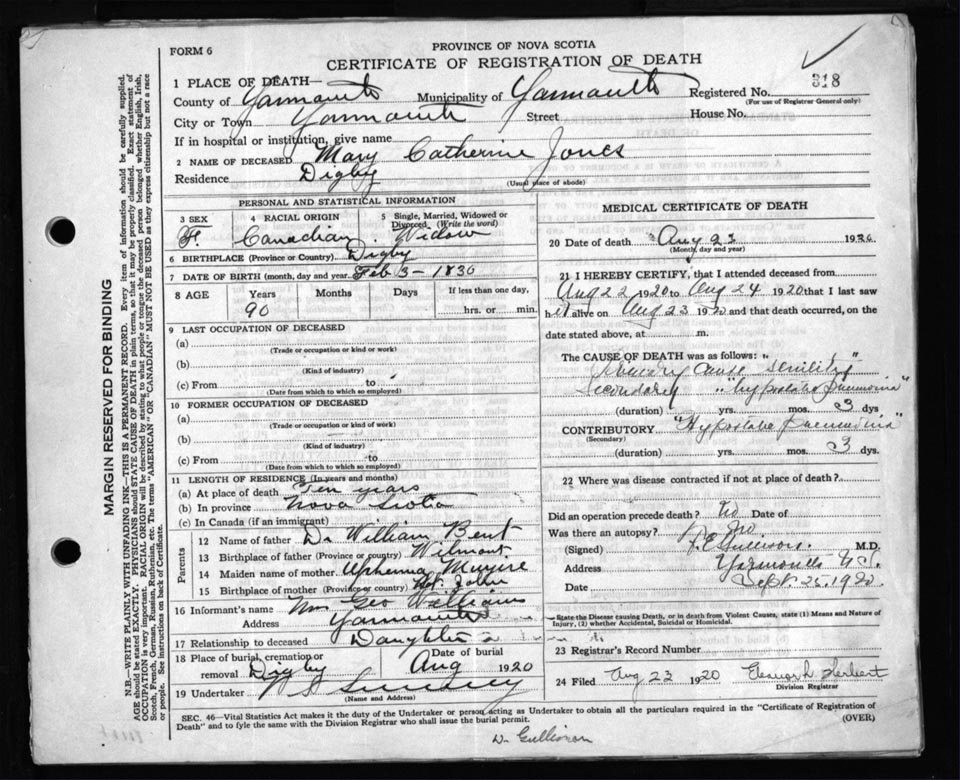 FORM 6
PROVINCE OF NOVA SCOTIA
CERTIFICATE OF REGISTRATION OF DEATH
318
1 PLACE OF DEATH—
County of Yarmouth Municipality of Yarmouth Registered No.
(For use of Registrar General only)
City or Town Yarmouth Street House No.
If in hospital or institution, give name
2 NAME OF DECEASED Mary Catherine Jones
Residence Digby
(Usual place of abode)
PERSONAL AND STATISTICAL INFORMATION
3 SEX 4 RACIAL ORIGIN 5 Single, Married, Widowed or Divorced (Write the word)
F. Canadian Widow
6 BIRTHPLACE (Province or Country) Digby
7 DATE OF BIRTH (month, day and year) Feb 3 - 1830
8 AGE Years Months Days If less than one day,
90 hrs. or min.
9 LAST OCCUPATION OF DECEASED
(a)
(Trade or occupation or kind or work)
(b)
(Kind of industry)
(c) From to
(Date from which to which so employed)
10 FORMER OCCUPATION OF DECEASED
(a)
(Trade or occupation or kind of work)
(b)
(Kind of industry)
(c) From to
(Date from which to which so employed)
11 LENGTH OF RESIDENCE (In years and months)
(a) At place of death Ten years
(b) In province Nova Scotia
(c) In Canada (if an immigrant)
Parents
12 Name of father Dr William Bent
13 Birthplace of father (Province or country) Wilmont
14 Maiden name of mother
15 Birthplace of mother (Province or country) St. John
16 Informant's name Mrs Geo Williams
Address Yarmouth
17 Relationship to deceased Daughter
18 Place of burial, cremation or removal Digby Date of burial Aug 1920
19 Undertaker
(Name and Address)
MEDICAL CERTIFICATE OF DEATH
20 Date of death Aug 23 1920
(Month, day and year)
21 I HEREBY CERTIFY, that I attended deceased from
Aug 22 1920 to Aug 24 1920 that I last saw
her alive on Aug 23 1920 and that death occurred, on the
date stated above, at m.
The CAUSE OF DEATH was as follows:
Primary Cause "Senility"
Secondary "Hypostatic Pneumonia"
(duration) yrs. mos. 3 dys
CONTRIBUTORY "Hypostatic Pneumonia"
(Secondary)
(duration) yrs. mos. 3 dys.
22 Where was disease contracted if not at place of death?
Did an operation precede death? No Date of
Was there an autopsy? No
(Signed) M.D.
Address Yarmouth N.S.
Date Sept. 25, 1920.
State the Disease causing Death, or in death from Violent Causes, state (1) Means and Nature of
Injury, (2) whether Accidental, Suicidal or Homicidal.
23 Registrar's Record Number
24 Filed Aug 23 1920 Herbert
Division Registrar
SEC. 46—Vital Statistics Act makes it the duty of the Undertaker or person acting as Undertaker to obtain all the particulars required in the "Certificate of Registration of
Death" and to fyle the same with the Division Registrar who shall issue the burial permit. (OVER)
MARGIN RESERVED FOR BINDING
N.B.—WRITE PLAINLY WITH UNFADING INK—THIS IS A PERMANENT RECORD. Every item of information should be carefully supplied.
AGE should be stated EXACTLY. PHYSICIANS should STATE CAUSE OF DEATH in plain terms, so that it may be properly classified. Exact statement of
OCCUPATION is very important. RACIAL ORIGIN will be described by stating to what people or tongue the deceased person belonged whether English, Irish,
Scotch, French, German, Russian, Ruthenian, etc. The terms "AMERICAN" or "CANADIAN" MUST NOT BE USED as they express citizenship but not a race
or people. See instructions on back of Certificate.